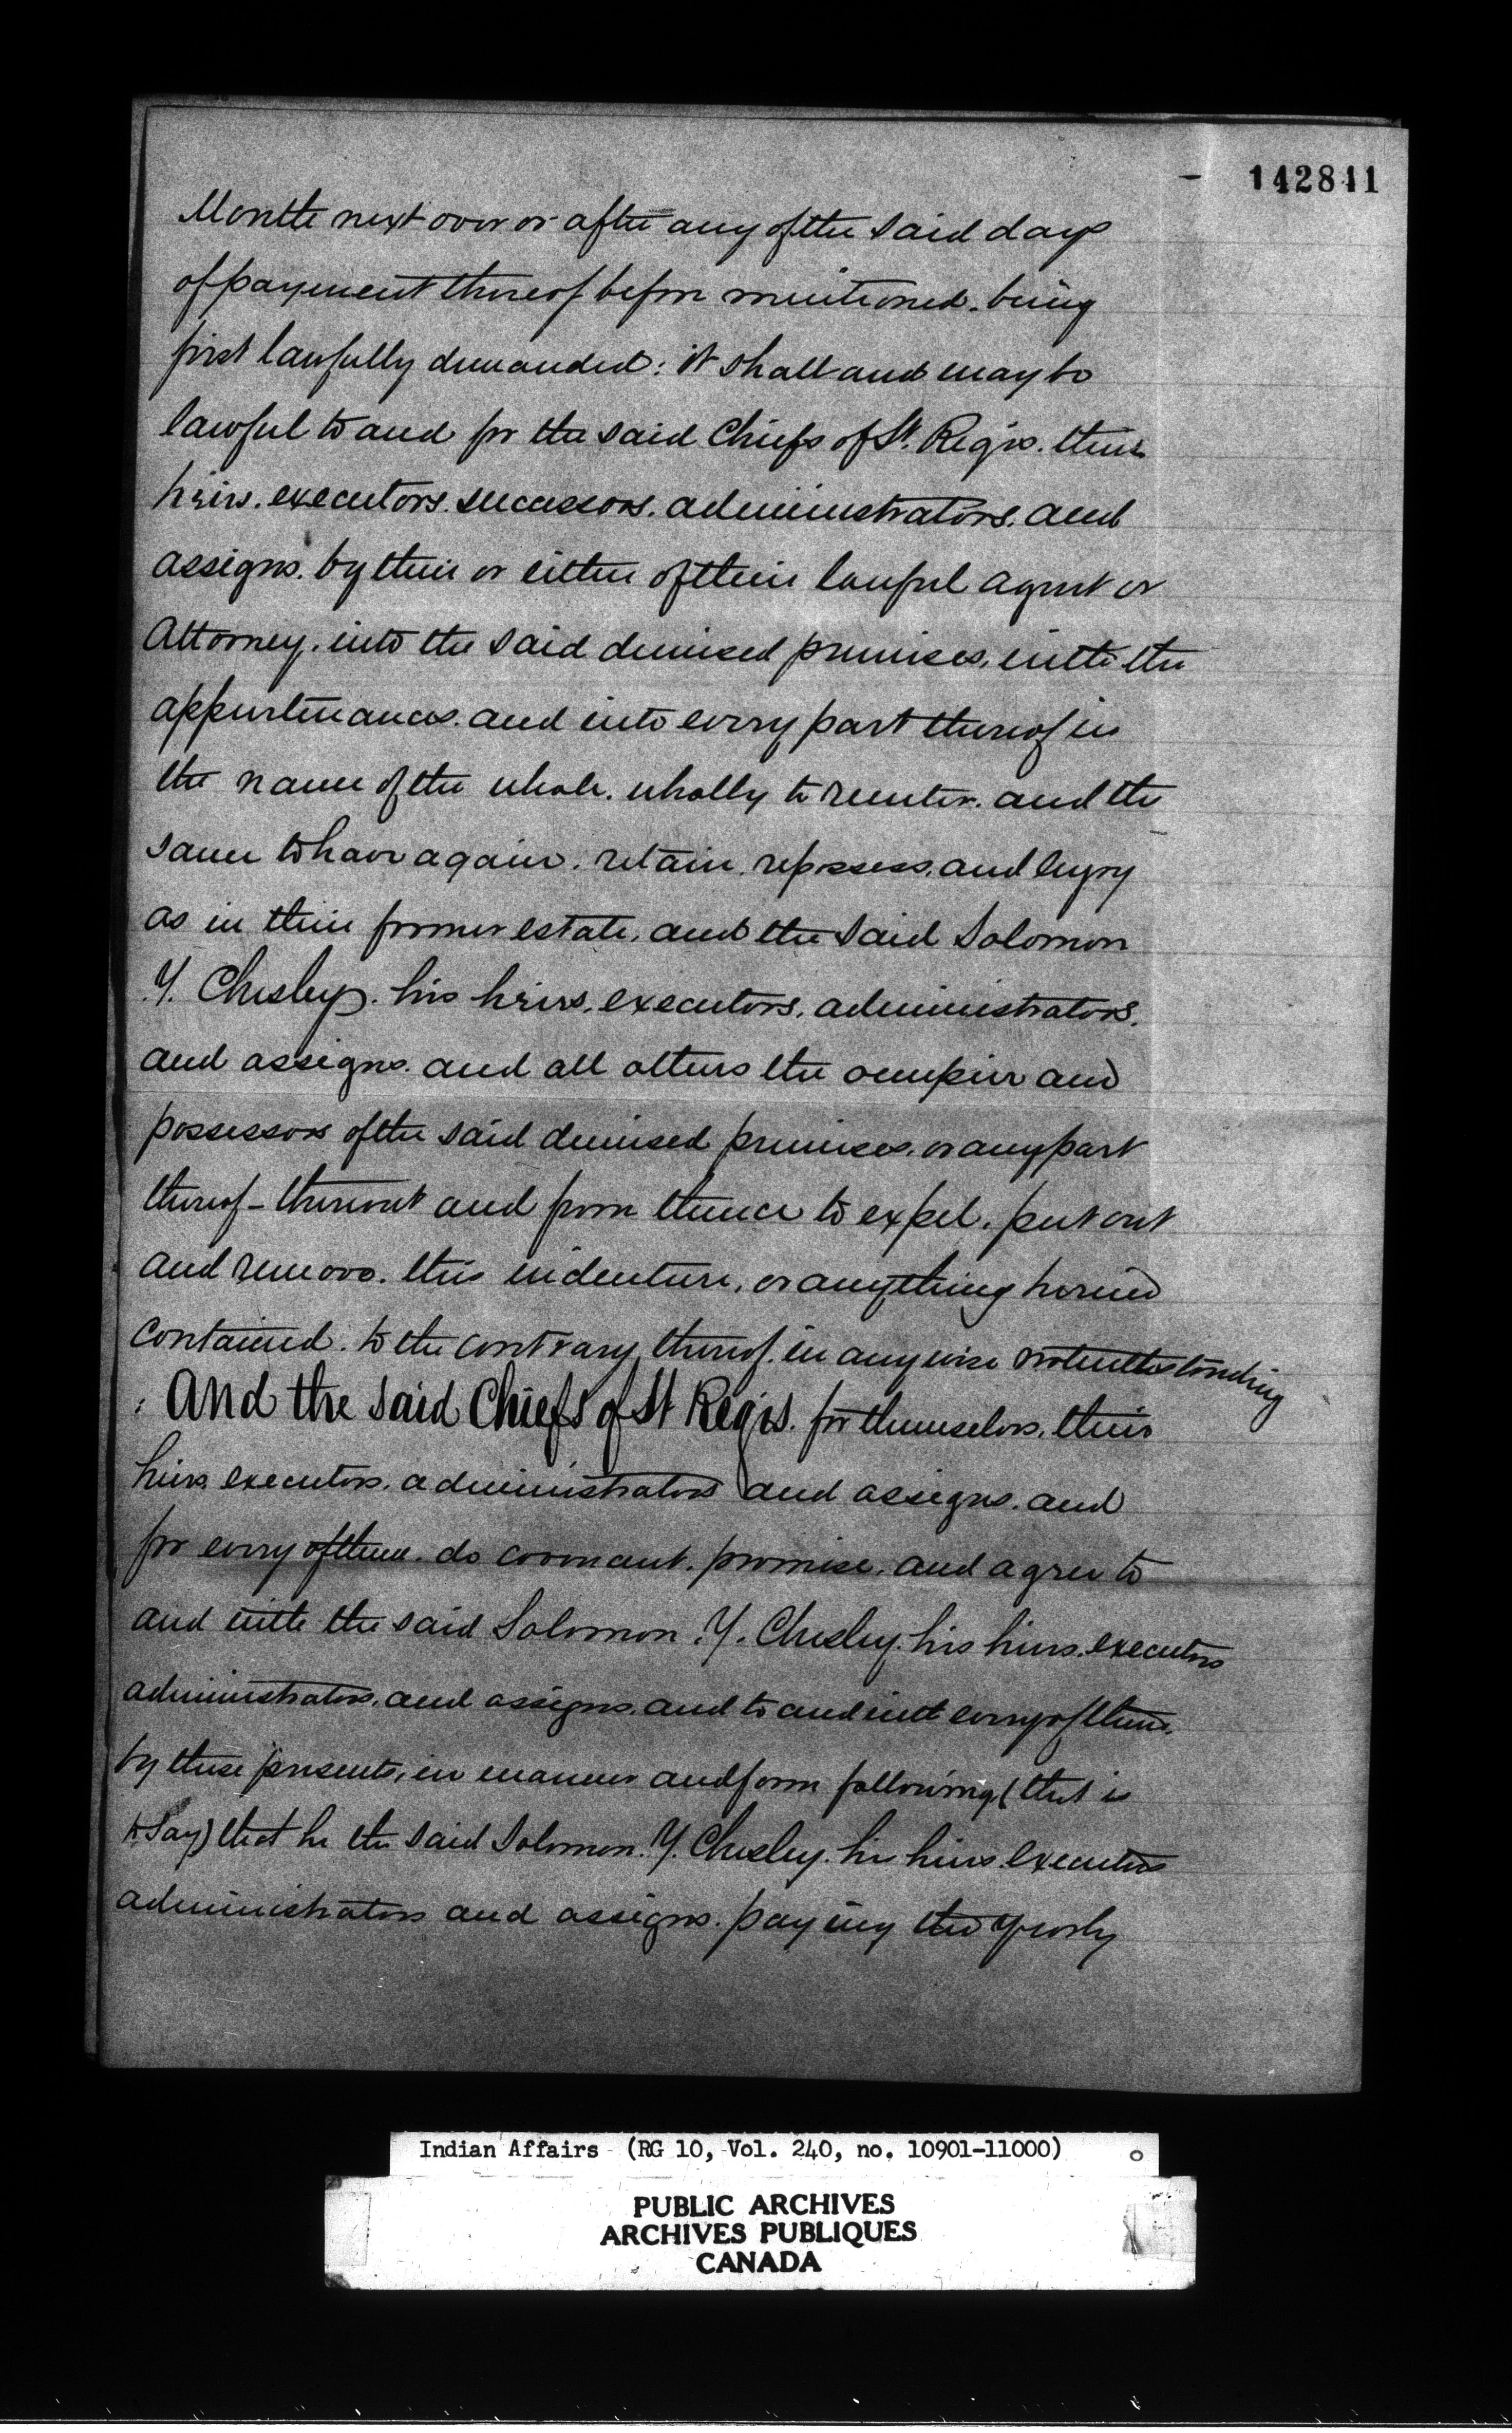 - 142811
Month next over or after any of the said days
of payment thereof before mentioned. being
first lawfully demanded: it shall and may be
lawful to and for the said Chiefs of St. Regis. their
heirs. executors. successors. administrators. and
assigns. by their or either of their lawful agent or
Attorney. into the said demised premises, with the
appurtenances. and into every part thereof in
the name of the whole. wholly to reenter. and the
same to have again. retain. repossess. and enjoy
as in their former estate, and the said Solomon
Y. Chesley. his heirs. executors. administrators.
and assigns. and all others the occupier and
possessors of the said demised premises. or any part
thereof - thereout and from thence to expel. put out
and remove. this indenture, or anything herein
contained. to the contrary thereof. in anywise notwithstanding
: And the said Chiefs of St Regis. for themselves, their
heirs. executors. administrators and assigns. and
for every of them. do covenant. promise. and agree to
and with the said Solomon. Y. Chesley. his heirs. executors
administrators. and assigns. and to and with every of them.
by these presents, in manner and form following (that is
to Say) that he the said Solomon. Y. Chesley. his heirs executors
administrators and assigns. paying the yearly
Indian Affairs (RG 10, Vol. 240, no. 10901-11000)
PUBLIC ARCHIVES
ARCHIVES PUBLIQUES
CANADA